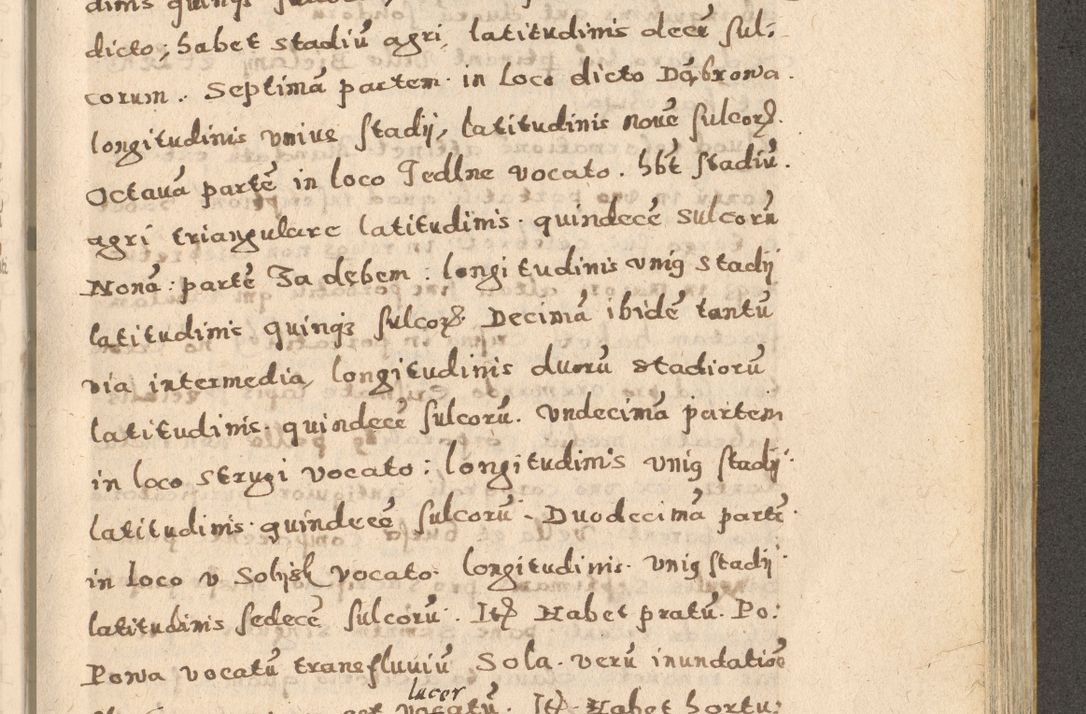 dicto; habet stadiũ agri, latitudinis decẽ sul:
corum. Septimã partem in loco dicto Dąbrowa.
longitudinis vnius stadij, latitudinis nouẽ sulcorꝝ.
Octauã partẽ in loco Jedlne vocato. hbt̃ stadiũ.
agri triangulare latitudinis. quindecẽ sulcorũ
Nonã: partẽ Za dębem. longitudinis vniꝰ stadij
latitudinis quinqꝫ sulcorꝝ. Decimã ibidẽ tantũ
via intermedia, longitudinis duorũ stadiorũ
latitudinis. quindecẽ sulcorũ. Vndecimã partem
in loco Strugi vocato: longitudinis vniꝰ stadij.
latitudinis. quindecẽ sulcorũ. Duodecimã partẽ.
in loco v vocato. longitudinis. vniꝰ stadij
latitudinis sedecẽ sulcorũ. Itꝫ Habet pratũ. Po:
Powa vocatũ transfluuiũ Sola. verũ inundatiõe
lucer
vocatũ. Itꝫ Habet hortũ: